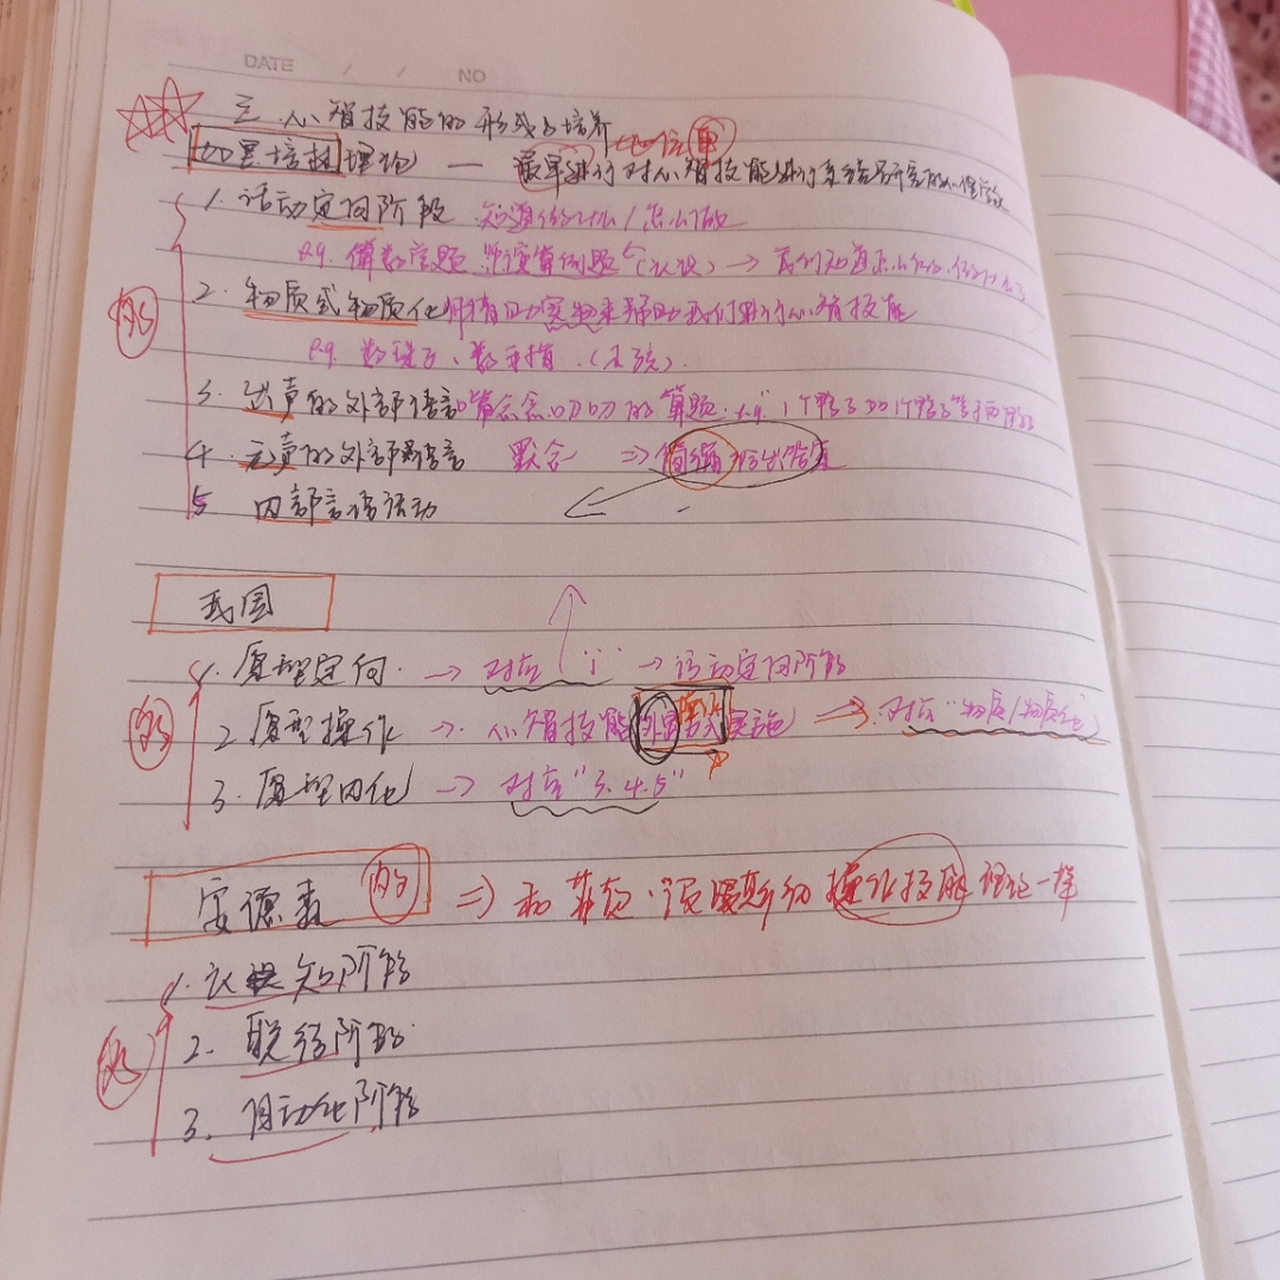 DATE / / NO
三.心智技能的形成与培养
加里培林理论 — 最早进行对心智技能进行系统研究的心理学家
1. 活动定向阶段 知道做什么/怎么做
e.g. 算数学题 演算例题 (认识) →
2. 物质或物质化 借助实物来帮助我们进行心智技能
e.g. 数珠子、数手指.
3. 出声的外部言语 嘴念念叨叨的算题. e.g. 1个鸭子加1个鸭子等于两
4. 无声的外部言语 默念 ⇒
5 内部言语活动
我国
1. 原型定向. → 对应 "1" → 活动定向阶段
2 原型操作 → 心智技能外显方式实施 ⇒ 对应"物质/物质化"
3. 原型内化 → 对应"3.4.5"
安德森 ⇒ 和菲茨·波斯纳 操作技能理论一样
1. 认知阶段
2. 联结阶段
3. 自动化阶段